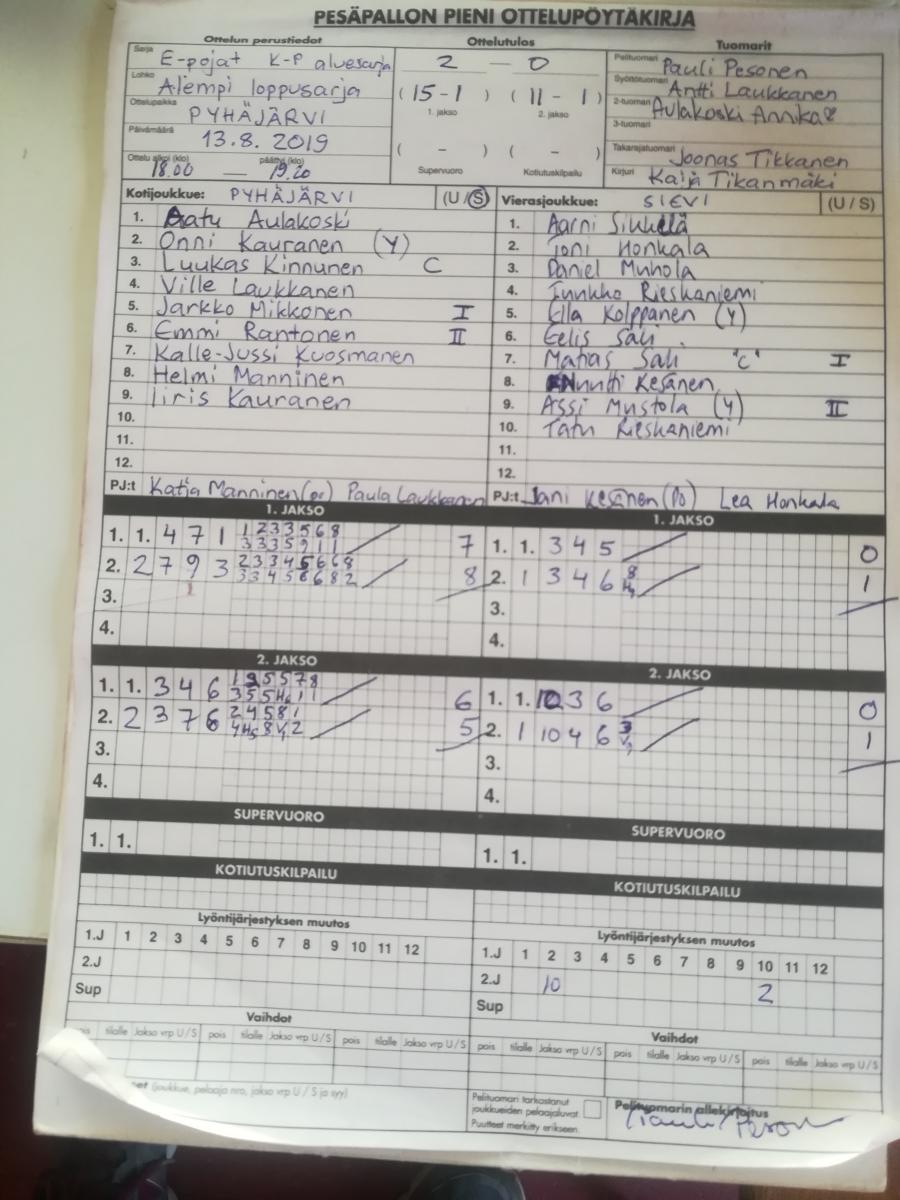 PESÄPALLON PIENI OTTELUPÖYTÄKIRJA
Ottelun perustiedot
Sarja E-pojat K-P aluesarja
Lohko Alempi loppusarja
Ottelupaikka PYHÄJÄRVI
Päivämäärä 13.8.2019
Ottelu alkoi (klo) 18.00 — päättyi (klo) 19.20
Ottelutulos
2 — 0
(15-1) (11-1)
1. jakso 2. jakso
( - ) ( - )
Supervuoro Kotiutuskilpailu
Tuomarit
Pelituomari Pauli Pesonen
Syöttötuomari Antti Laukkanen
2-tuomari Aulakoski Annika
3-tuomari
Takarajatuomari Joonas Tikkanen
Kirjuri Kaija Tikanmäki
Kotijoukkue: PYHÄJÄRVI (U/S)
1. Aatu Aulakoski
2. Onni Kauranen (Y)
3. Luukas Kinnunen C
4. Ville Laukkanen
5. Jarkko Mikkonen I
6. Emmi Rantonen II
7. Kalle-Jussi Kuosmanen
8. Helmi Manninen
9. Iiris Kauranen
10.
11.
12.
PJ:t Katja Manninen Paula Laukkanen
Vierasjoukkue: SIEVI (U/S)
1. Aarni Sikkelä
2. Toni Honkala
3. Daniel Muhola
4. Juukko Rieskaniemi
5. Ella Kolppanen (Y)
6. Eelis Sali
7. Matias Sali "C" I
8. Nuutti Kesänen
9. Assi Mustola (Y) II
10. Tatu Rieskaniemi
11.
12.
PJ:t Jani Kesänen (Po) Lea Honkala
1. JAKSO
1. 1. 4 7 1 1 2 3 3 5 6 8 7
3 3 3 5 9 1 1
2. 2 7 9 3 2 3 3 4 5 6 6 8 8
3 3 4 5 6 6 8 2
3.
4.
1. JAKSO
1. 1. 3 4 5 0
2. 1 3 4 6 8 1
3.
4.
2. JAKSO
1. 1. 3 4 6 1 2 5 5 7 8 6
3 5 5 H6 1 1
2. 2 3 7 6 2 4 5 8 1 5
4 H5 8 V1 2
3.
4.
2. JAKSO
1. 1. 10 3 6 0
2. 1 10 4 6 3 1
3.
4.
SUPERVUORO
1. 1.
SUPERVUORO
1. 1.
KOTIUTUSKILPAILU
KOTIUTUSKILPAILU
Lyöntijärjestyksen muutos
1.J 1 2 3 4 5 6 7 8 9 10 11 12
2.J
Sup
Lyöntijärjestyksen muutos
1.J 1 2 3 4 5 6 7 8 9 10 11 12
2.J 10 2
Sup
Vaihdot
tilalle Jakso vrp U/S pois tilalle Jakso vrp U/S pois tilalle Jakso vrp U/S
Vaihdot
pois tilalle Jakso vrp U/S pois tilalle Jakso vrp U/S pois tilalle Jakso vrp U/S
(joukkue, pelaaja nro, jakso vrp U/S ja syy)
Pelituomari tarkastanut
joukkueiden pelaajaluvat.
Puutteet merkitty erikseen.
Pelituomarin allekirjoitus
Pauli Pesonen